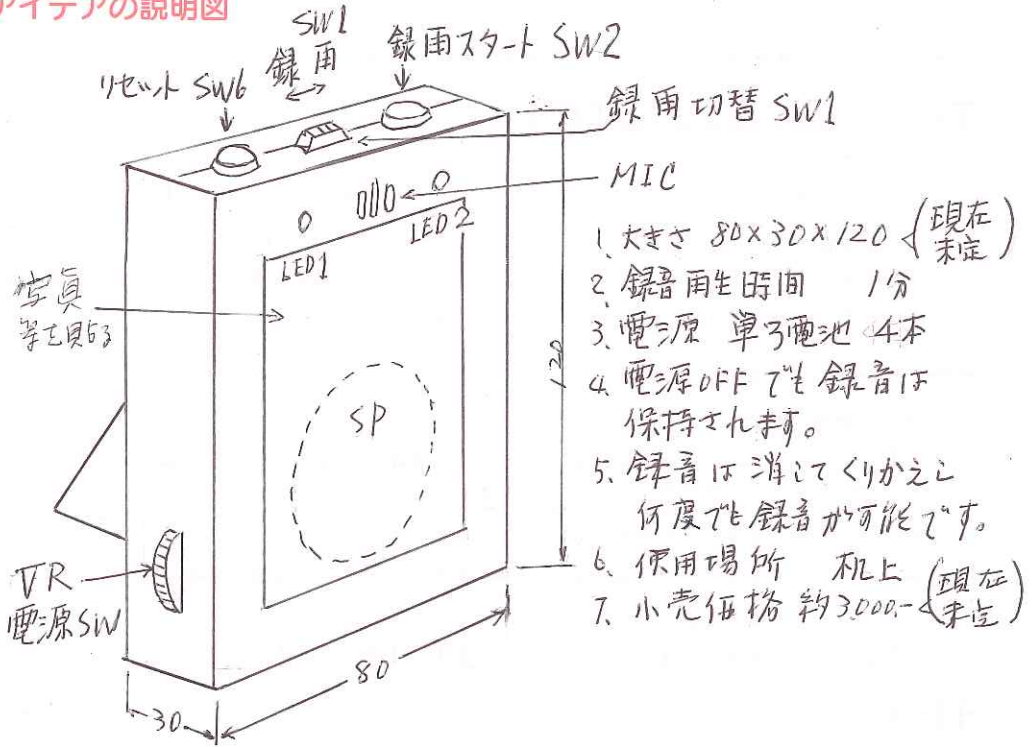 アイデアの説明図
SW1
録再
録再スタート SW2
リセット SW6
録再切替 SW1
MIC
LED1
LED2
写真
等を貼る
SP
VR
電源SW
120
80
30
1. 大きさ 80×30×120 (現在未定)
2. 録音再生時間 1分
3. 電源 単3電池 4本
4. 電源OFFでも録音は
保持されます。
5. 録音は消してくりかえし
何度でも録音が可能です。
6. 使用場所 机上
7. 小売価格 約3000.- (現在未定)